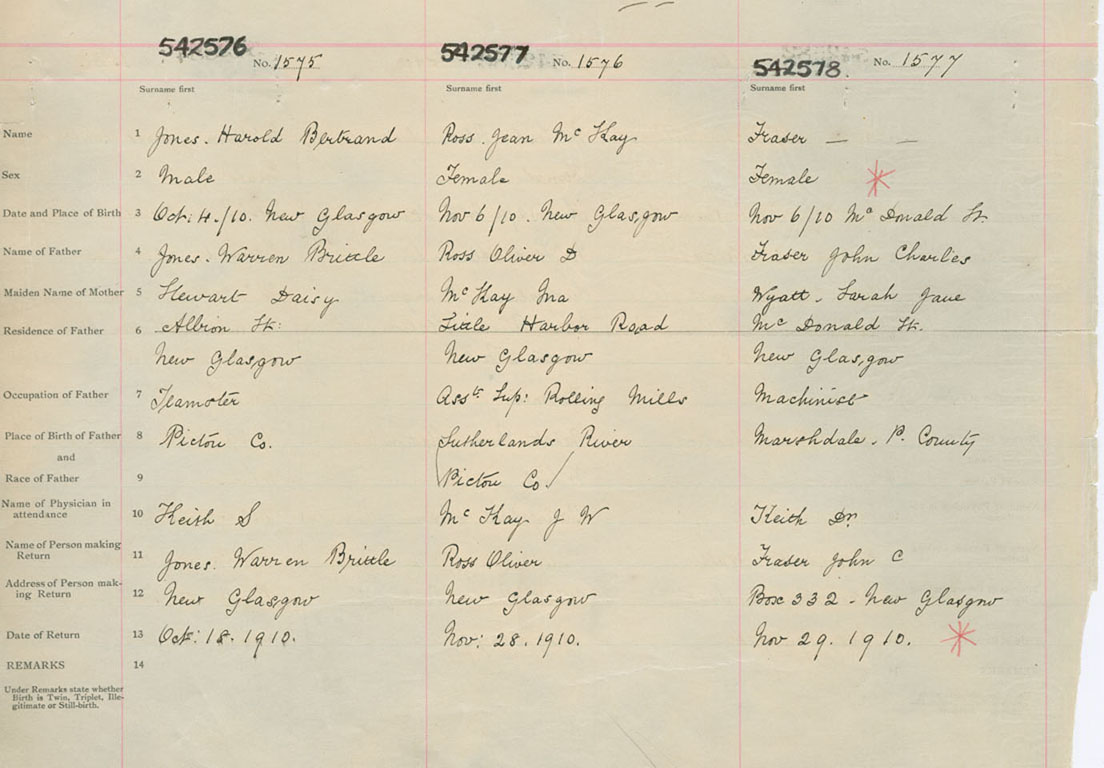 542576 No. 1575 542577 No. 1576 542578. No. 1577
Surname first Surname first Surname first
Name 1 Jones. Harold Bertrand Ross. Jean Mc Kay Fraser — —
Sex 2 Male Female Female
Date and Place of Birth 3 Oct: 4./10. New Glasgow Nov 6/10. New Glasgow Nov 6/10 Mc Donald St.
Name of Father 4 Jones. Warren Brittle Ross Oliver D Fraser John Charles
Maiden Name of Mother 5 Stewart Daisy Mc Kay Ina Wyatt. Sarah Jane
Residence of Father 6 Albion St: Little Harbor Road Mc Donald St.
New Glasgow New Glasgow New Glasgow
Occupation of Father 7 Teamster Asst. Sup: Rolling Mills Machinist
Place of Birth of Father 8 Pictou Co. Sutherlands River Marshdale. P. County
and
Race of Father 9 (Pictou Co)
Name of Physician in
attendance 10 Keith S Mc Kay J W Keith Dr.
Name of Person making
Return 11 Jones. Warren Brittle Ross Oliver Fraser John C
Address of Person mak-
ing Return 12 New Glasgow New Glasgow Box 332 - New Glasgow
Date of Return 13 Oct: 18. 1910. Nov: 28. 1910. Nov 29. 1910.
REMARKS 14
Under Remarks state whether
Birth is Twin, Triplet, Ille-
gitimate or Still-birth.